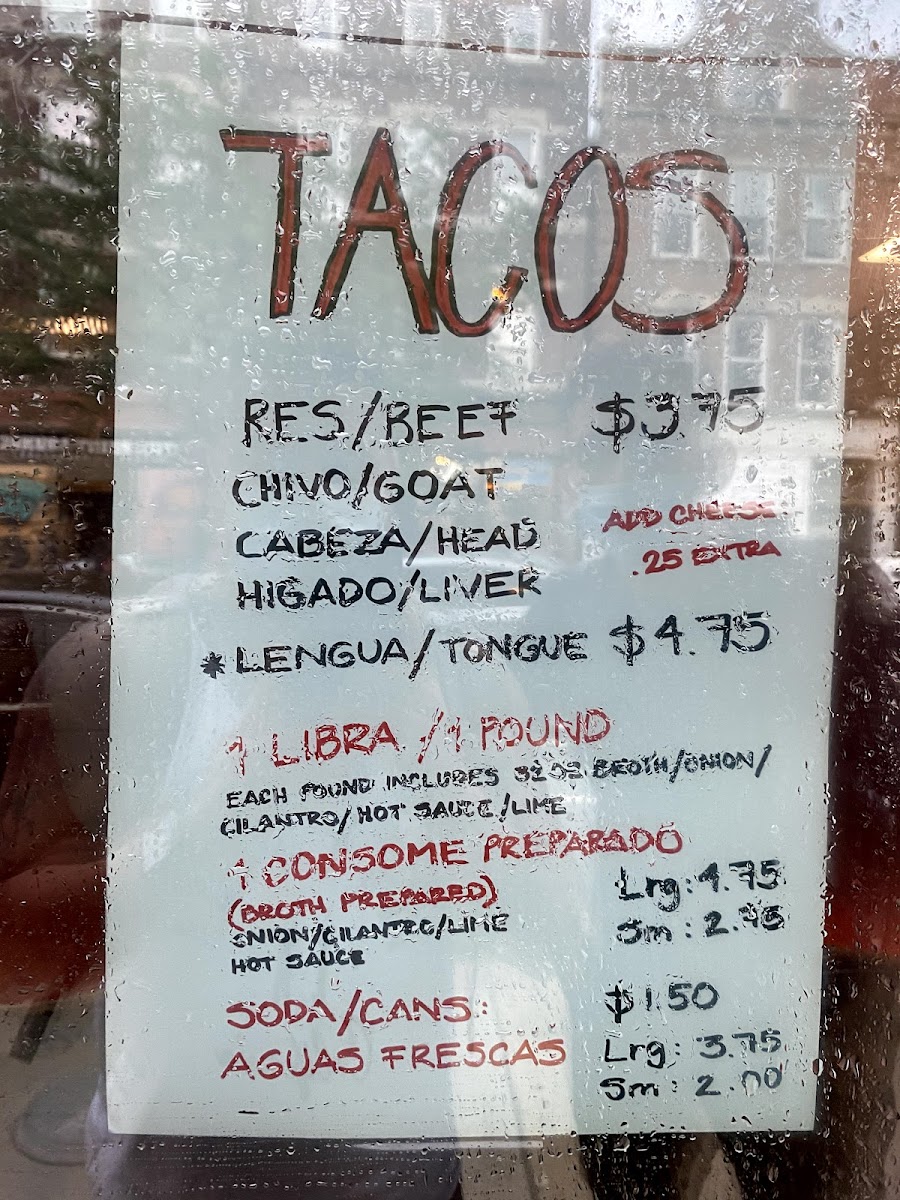 TACOS
RES/BEEF $3.75
CHIVO/GOAT
CABEZA/HEAD ADD CHEESE
HIGADO/LIVER .25 EXTRA
*LENGUA/TONGUE $4.75
1 LIBRA/1 POUND
EACH POUND INCLUDES 32OZ BROTH/ONION/
CILANTRO/HOT SAUCE/LIME
1 CONSOME PREPARADO
(BROTH PREPARED) Lrg: 4.75
ONION/CILANTRO/LIME Sm: 2.75
HOT SAUCE
SODA/CANS: $1.50
AGUAS FRESCAS Lrg: 3.75
Sm: 2.00